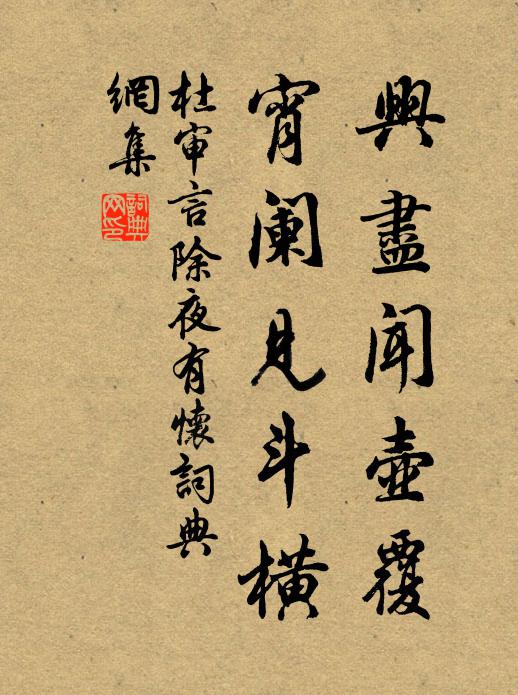 興盡聞壺覆
宵阑見斗橫
杜审言除夜有懷詞典
網集
詞典
网印